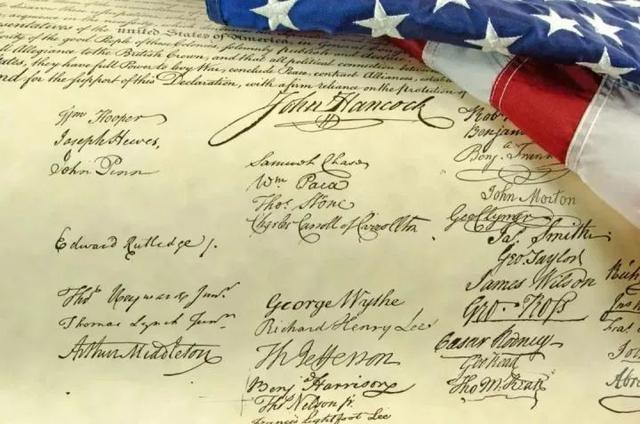 united States of
good People of these Colonies, solemnly publish and
all Allegiance to the British Crown, and that all political connection between
they have full Power to levy War, conclude Peace, contract Alliances,
nd for the support of this Declaration, with a firm reliance on the protection of
John Hancock
Wm Hooper
Joseph Hewes,
John Penn
Edward Rutledge /.
Thos Heyward Junr.
Thomas Lynch Junr.
Arthur Middleton
Samuel Chase
Wm Paca
Thos. Stone
Charles Carroll of Carrollton
George Wythe
Richard Henry Lee
Th Jefferson
Benj Harrison
Thos Nelson jr.
Francis Lightfoot Lee
Rob
Benjamin
Benj. Frank
John Morton
Geo Clymer
Jas. Smith
Geo. Taylor
James Wilson
Geo. Ross
Caesar Rodney
Geo Read
Tho M:Kean